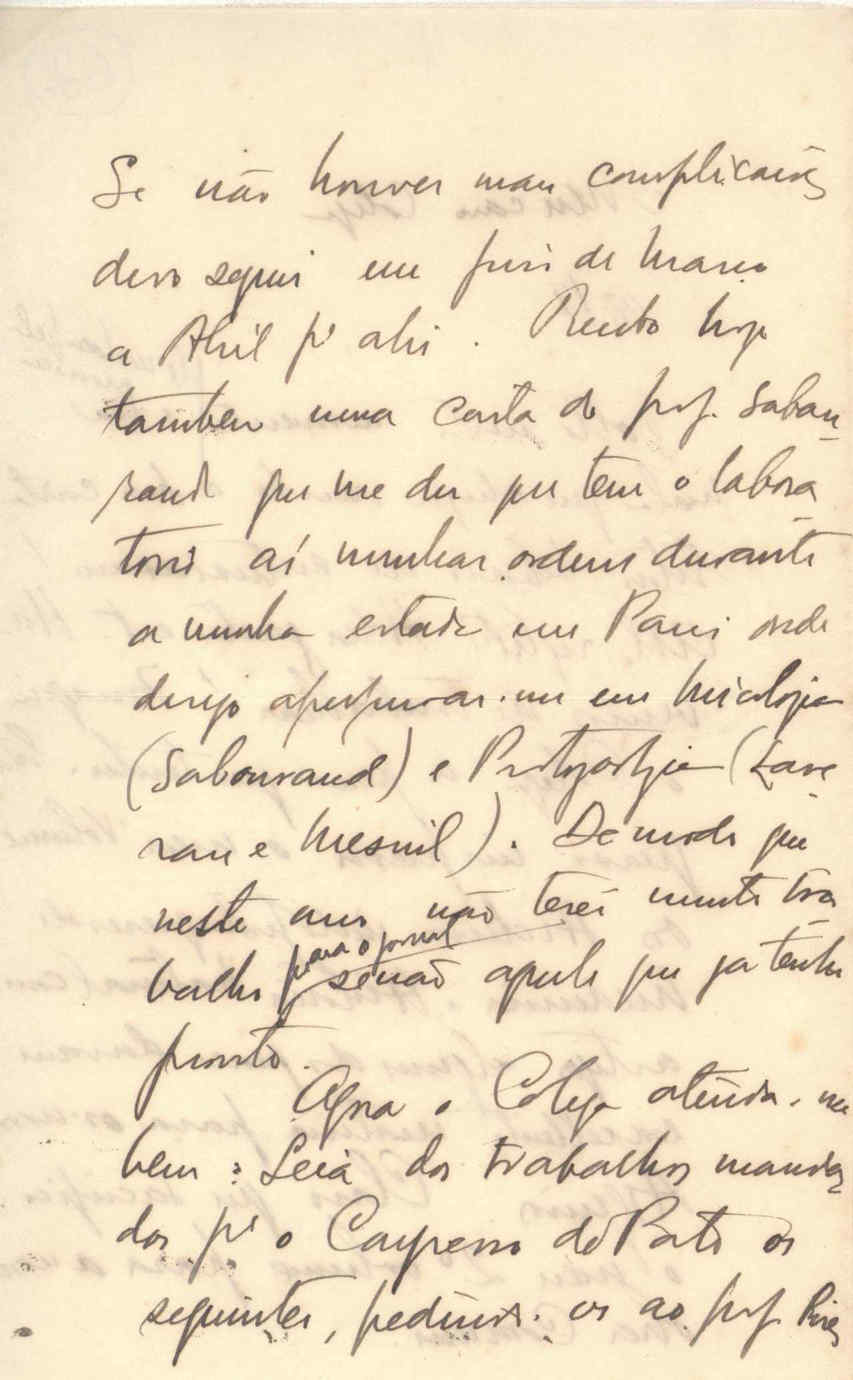 Se não houver mais complicações
devo seguir em fins de Março
a Abril pª ahi. Recebo hoje
tambem uma carta do prof. Sabou-
raud que me diz que tem o labora
torio ás minhas ordens durante
a minha estada em Paris onde
desejo aperfeiçoar-me em Micologia
(Sabouraud) e Protozoologia (Lave
ran e Mesnil). De modo que
neste ano não terei muito tra
balho para o jornal senão aquele que ja tenho
pronto.
Agora o Colega atenda-me
bem: Leia dos trabalhos manda-
dos pª o Congresso do Porto os
seguintes, pedindo-os ao prof. Pires